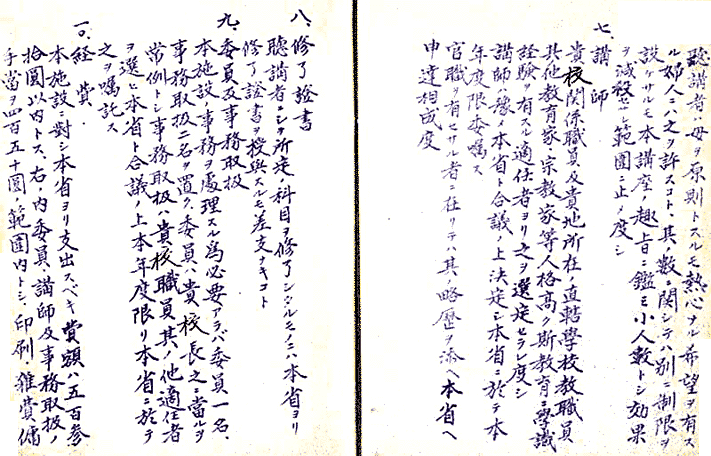 聴講者ハ母ヲ原則トスルモ熱心ナル希望ヲ有ス
ル婦人ニハ之ヲ許スコト、其ノ数ニ関シテハ別ニ制限ヲ
設ケサルモ本講座ノ趣旨ニ鑑ミ小人数トシ効果
ヲ減殺セヌ範囲ニ止メ度シ
七、講師
貴校関係職員及貴地所在ノ直轄学校教職員
其他教育家、宗教家等人格高ク斯教育ニ学識
経験ヲ有スル適任者ヨリ之ヲ選定セラレ度シ
講師ハ豫メ本省ト合議ノ上決定シ本省ニ於テ本
年度限委嘱ス
官職ヲ有セサル者ニ在リテハ其ノ略歴ヲ添ヘ本省ヘ
申達相成度
八、修了證書
聴講者ニシテ所定ノ科目ヲ修了シタルモノニハ本省ヨリ
修了證書ヲ授與スルモ差支ナキコト
九、委員及事務取扱
本施設ノ事務ヲ處理スル為必要アラバ委員一名、
事務取扱二名ヲ置ク、委員ハ貴校長之ニ當ルヲ
常例トシ事務取扱ハ貴校職員其ノ他適任者
ヲ選ヒ本省ト合議ノ上本年度限リ本省ニ於テ
之ヲ嘱託ス
一〇、経費
本施設ニ對シ本省ヨリ支出スベキ費額ハ五百参
拾圓以内トス、右ノ内委員、講師及事務取扱ノ
手當ヲ四百五十圓ノ範囲内トシ、印刷、雑費、傭